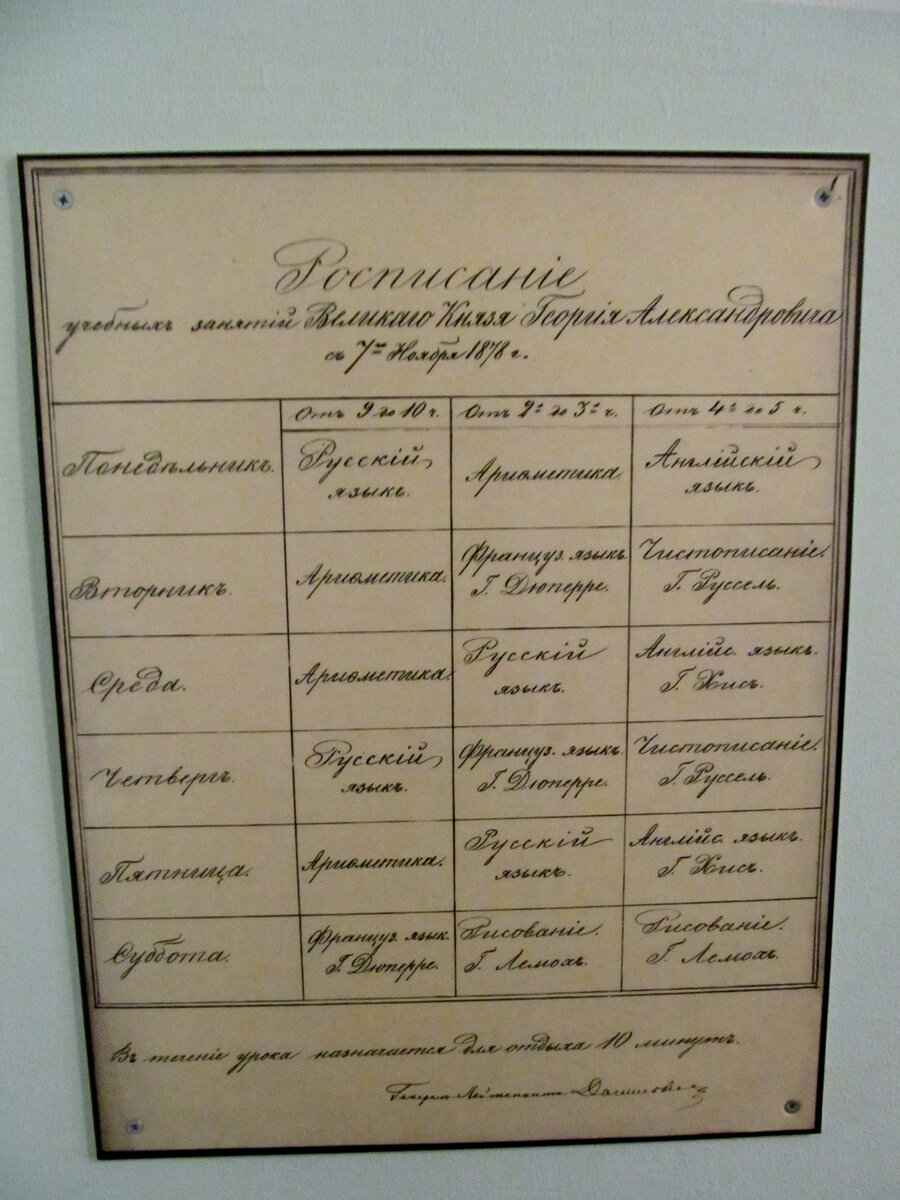 Росписаніе
учебныхъ занятій Великаго Князя Георгія Александровича
съ 7го Ноября 1878 г.
Отъ 9 до 10 ч. Отъ 2хъ до 3хъ ч. Отъ 4хъ до 5 ч.
Понедѣльникъ. Русскій языкъ. Ариѳметика Англійскій языкъ.
Вторникъ. Ариѳметика. Француз. языкъ. Г. Дюперре. Чистописаніе. Г. Руссель.
Среда. Ариѳметика Русскій языкъ. Англійс. языкъ. Г. Хисъ.
Четвергъ. Русскій языкъ. Француз. языкъ Г. Дюперре. Чистописаніе. Г. Руссель.
Пятница. Ариѳметика. Русскій языкъ. Англійс. языкъ. Г. Хисъ.
Суббота. Француз. язык. Г. Дюперре. Рисованіе. Г. Лемохъ. Рисованіе. Г. Лемохъ.
Въ теченіе урока назначается для отдыха 10 минутъ.
Генералъ Лейтенантъ Даниловичъ